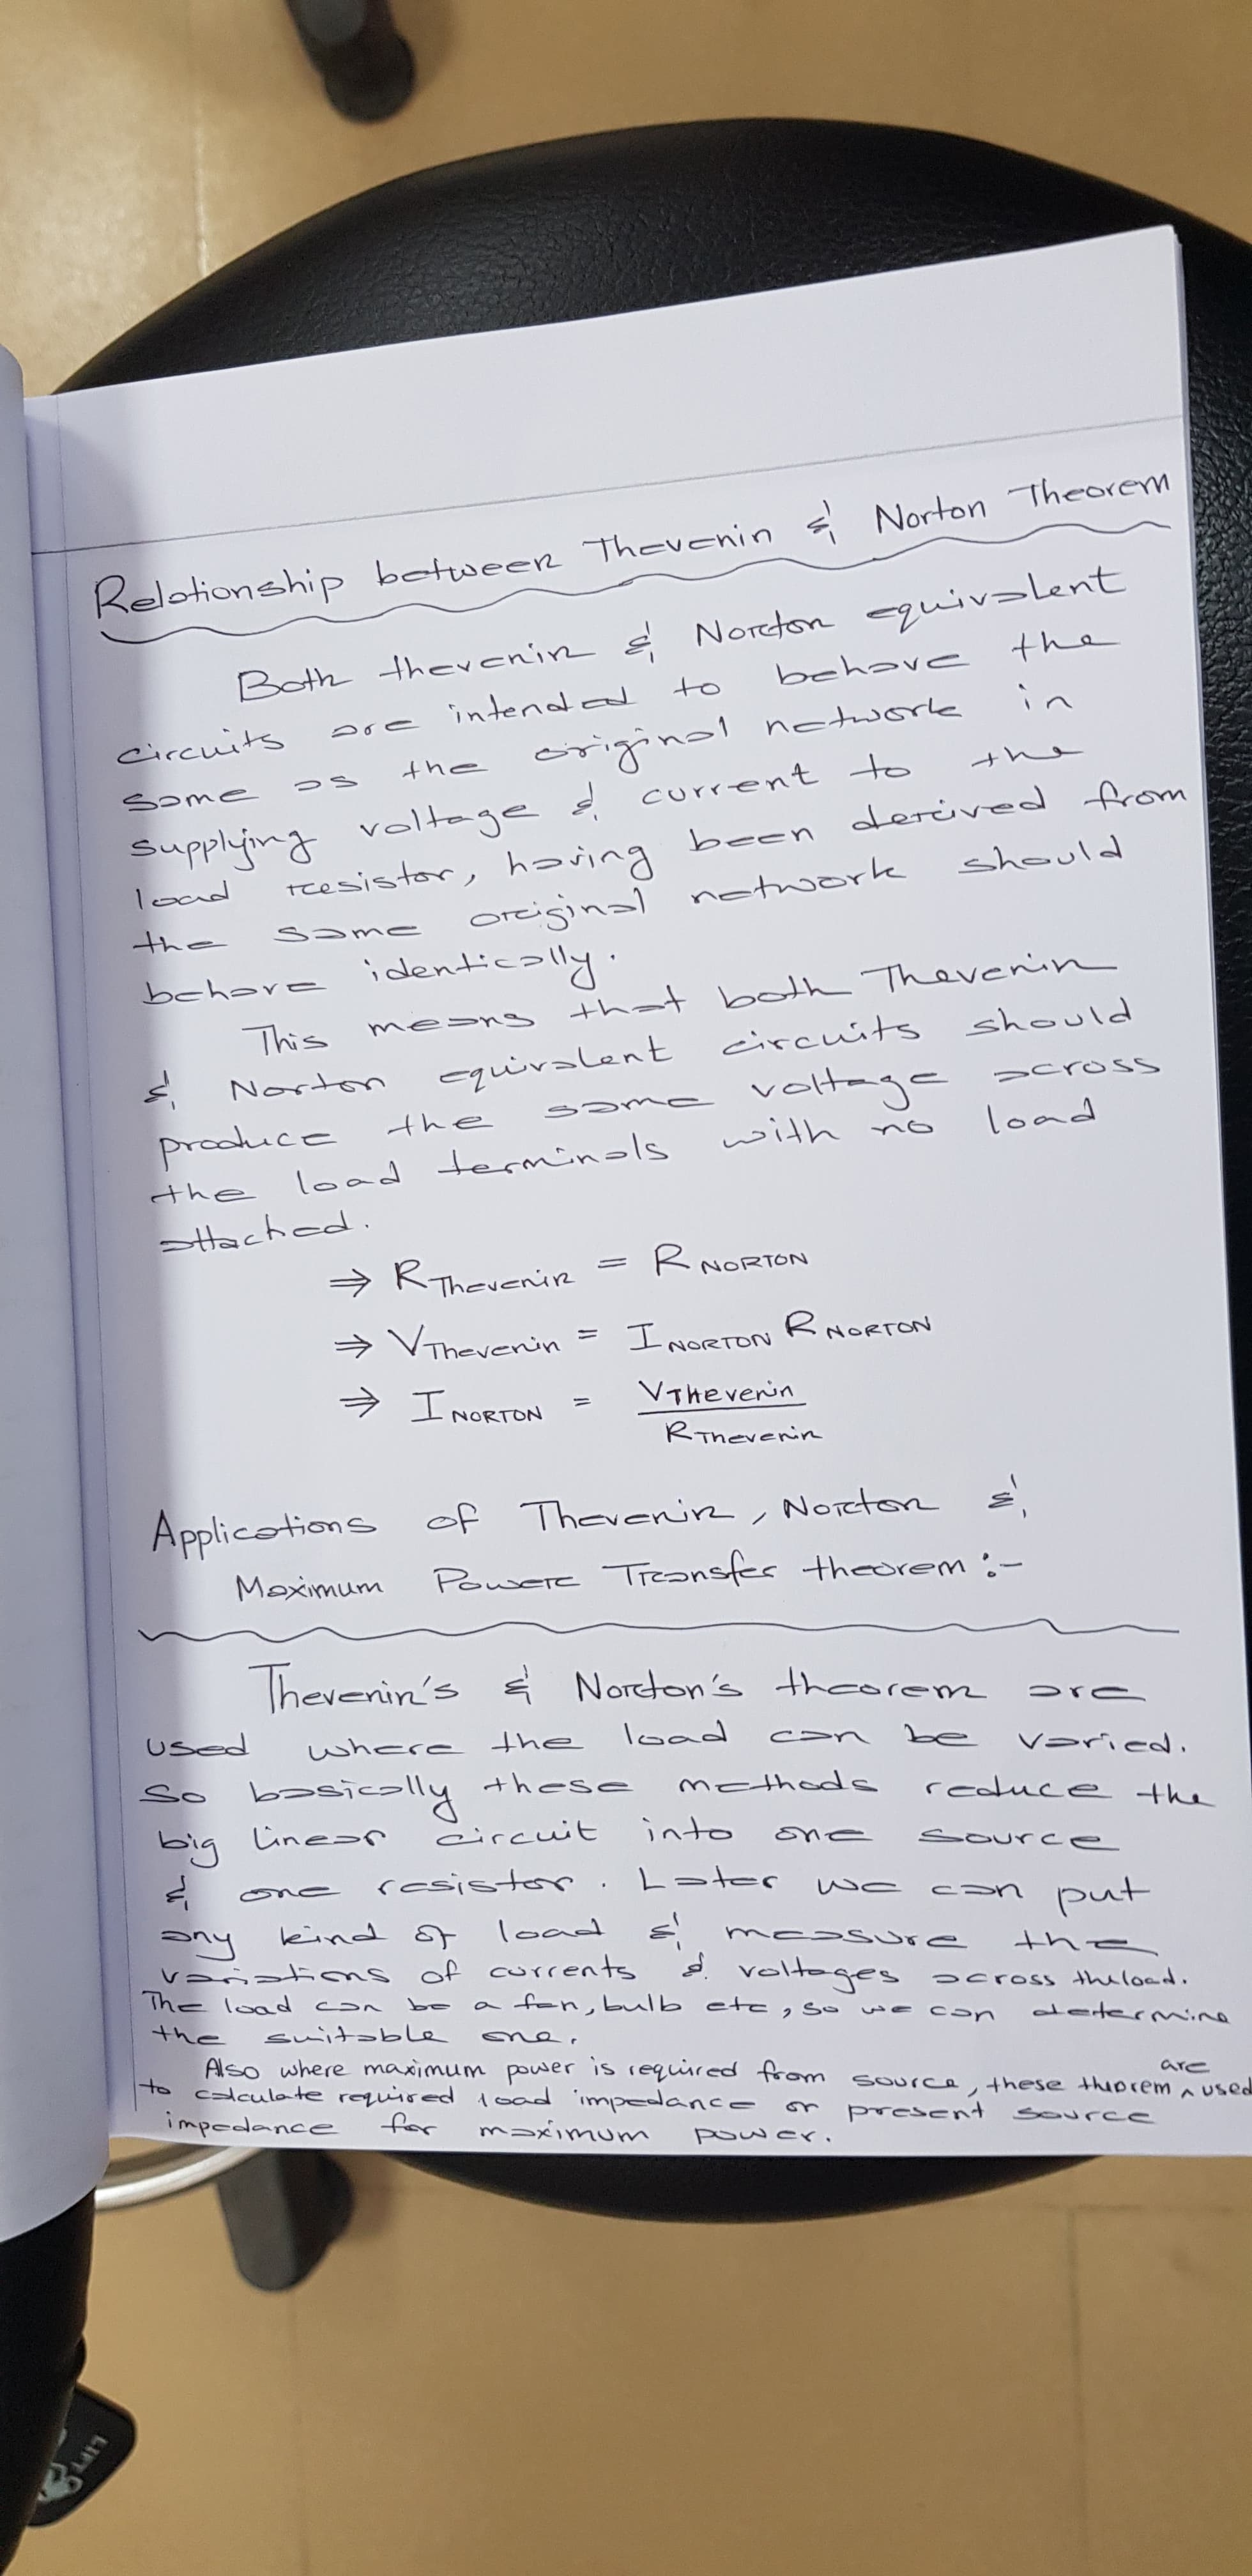 Relationship between Thevenin & Norton Theorem
Both thevenin & Norton equivalent
circuits are intended to behave the
same as the original network in
supplying voltage & current to the
load resistor, having been derived from
the same original network should
behave identically.
This means that both Thevenin
& Norton equivalent circuits should
produce the same voltage across
the load terminals with no load
attached.
⇒ R Thevenin = R NORTON
⇒ V Thevenin = I NORTON R NORTON
⇒ I NORTON = V THevenin / R Thevenin
Applications of Thevenin, Norton &
Maximum Power Transfer theorem :-
Thevenin's & Norton's theorem are
used where the load can be varied.
So basically these methods reduce the
big linear circuit into one source
& one resistor. Later we can put
any kind of load & measure the
variations of currents & voltages across the load.
The load can be a fan, bulb etc, so we can determine
the suitable one.
Also where maximum power is required from source, these theorem ^are used
to calculate required load impedance or present source
impedance for maximum power.